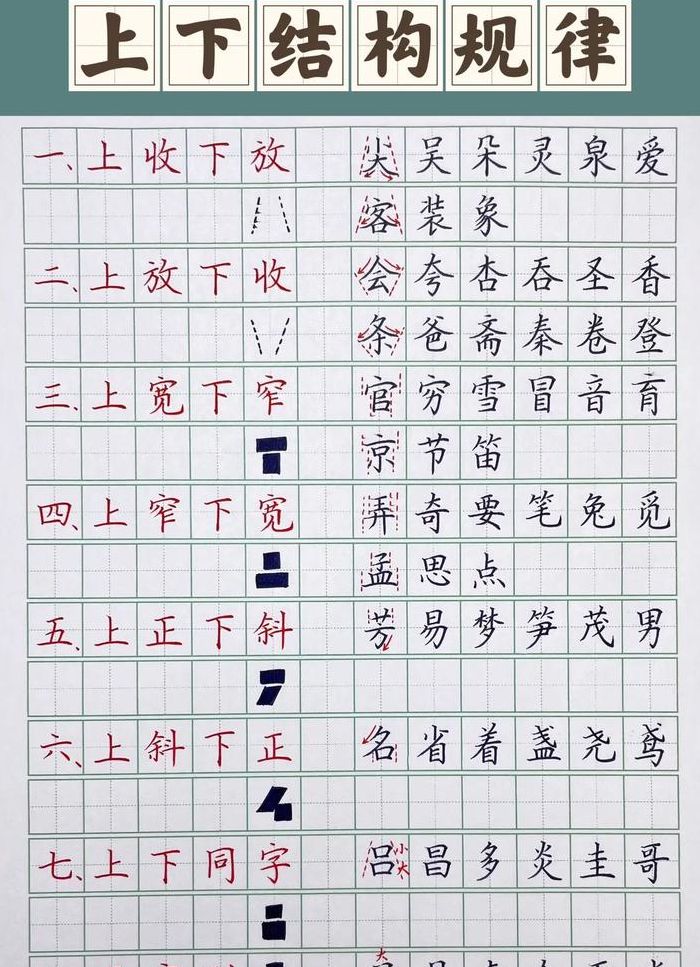 上下结构规律
一、上收下放 尖吴朵灵泉爱
客装象
二、上放下收 会夸杏吞圣香
条爸斋秦卷登
三、上宽下窄 官穷雪冒音育
京节笛
四、上窄下宽 弄奇要笔兔觅
孟思点
五、上正下斜 芳易梦笋茂男
六、上斜下正 名省着盏尧鸢
七、上下同字 吕小大昌多炎圭哥
大